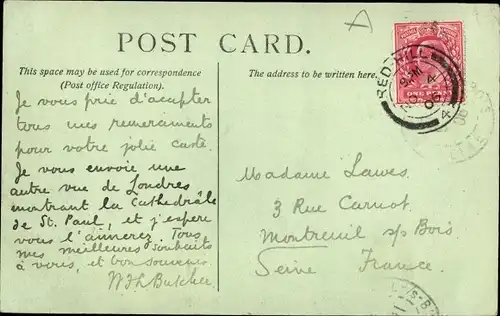 POST CARD.
This space may be used for correspondence
(Post office Regulation).
The address to be written here.
Je vous prie d'accepter
tous mes remerciments
pour votre jolie carte.
Je vous envoie une
autre vue de Londres
montrant la Cathedrâle
de St. Paul, et j'espere
vous l'aimerez. Tous
mes meilleures souhaits
à vous, et bon souvenir
W J L Butcher
Madame Lawes
3 Rue Carnot
Montreuil s/p Bois
Seine France.
REDHILL
ONE PENNY